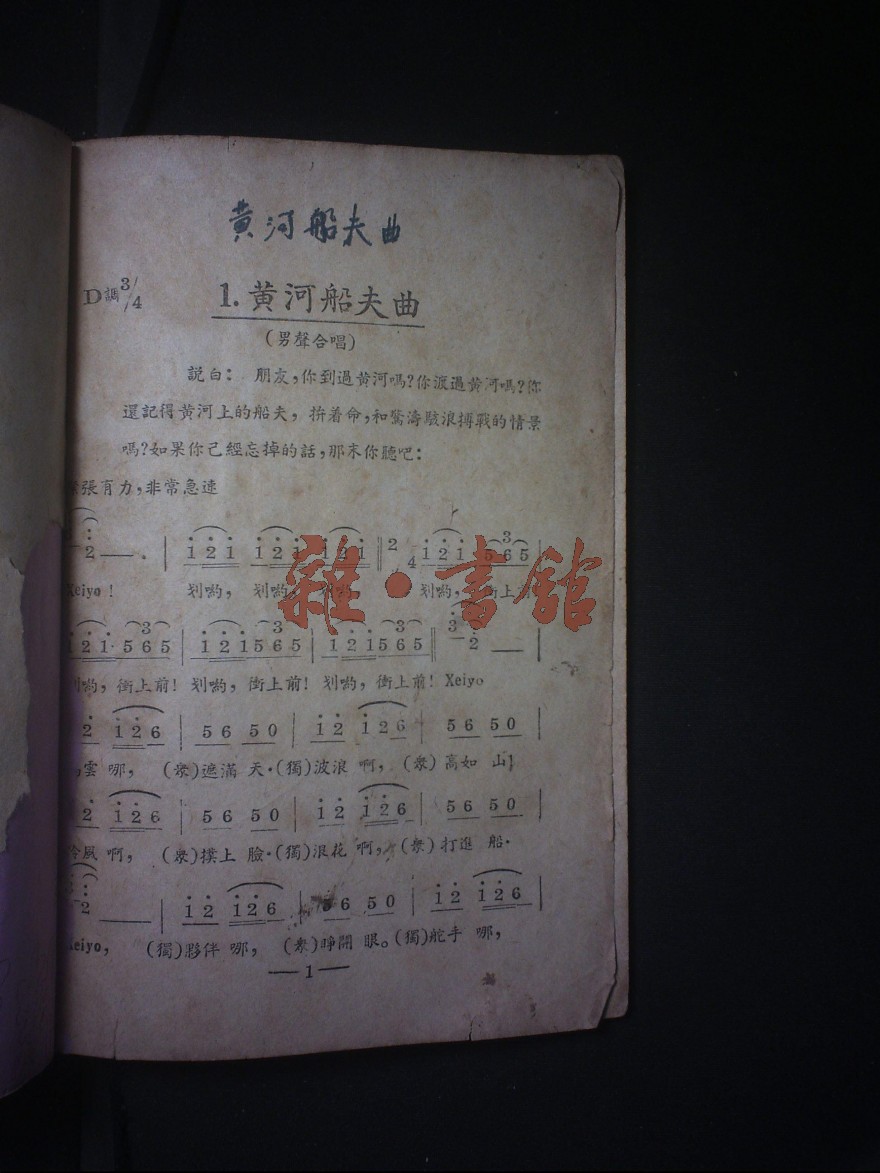 黄河船夫曲
D調3/4 1.黄河船夫曲
(男聲合唱)
説白： 朋友，你到過黄河嗎？你渡過黄河嗎？你
還記得黄河上的船夫，拚着命，和驚濤駭浪搏戰的情景
嗎？如果你已經忘掉的話，那末你聽吧：
張有力，非常急速
2 —— . | 1 2 1 1 2 1 1 2 1 || 2/4 1 2 1 5 6 5 |
Xeiyo！ 划喲，划喲，划喲， 划喲，衝上
1 2 1 · 5 6 5 | 1 2 1 5 6 5 | 1 2 1 5 6 5 || 3 2 —
划喲，衝上前！划喲，衝上前！划喲，衝上前！Xeiyo
2 1 2 6 | 5 6 5 0 | 1 2 1 2 6 | 5 6 5 0 |
雲哪，(衆)遮滿 天·(獨)波浪 啊，(衆)高如 山！
2 1 2 6 | 5 6 5 0 | 1 2 1 2 6 | 5 6 5 0 |
冷風 啊，(衆)撲上 臉·(獨)浪花 啊，(衆)打進 船·
3 2 —— | 1 2 1 2 6 | 5 6 5 0 | 1 2 1 2 6 |
Xeiyo， (獨)夥伴 哪，(衆)睁開 眼。(獨)舵手 哪，
—1—
雜·書舘